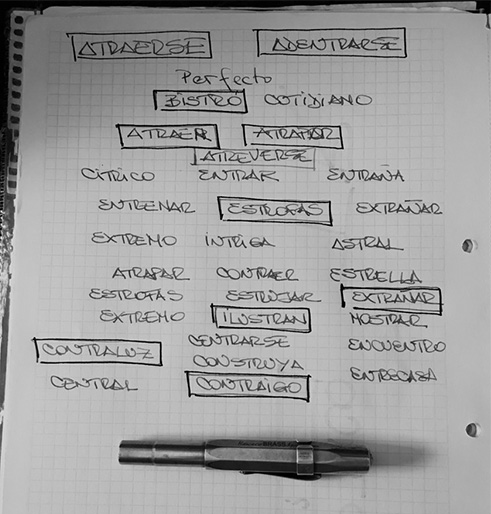 ATRAERSE ADENTRARSE
Perfecto
BISTRÓ COTIDIANO
ATRAER ATRAPAR
ATREVERSE
CÍTRICO ENTRAR ENTRAÑA
ENTRENAR ESTROFAS EXTRAÑAR
EXTREMO INTRIGA ASTRAL
ATRAPAR CONTRAER ESTRELLA
ESTROFAS ESTRUJAR EXTRAÑAR
EXTREMO ILUSTRAN MOSTRAR
CONTRALUZ CENTRARSE ENCUENTRO
CONSTRUYA
CENTRAL CONTRAIGO ENTRECASA